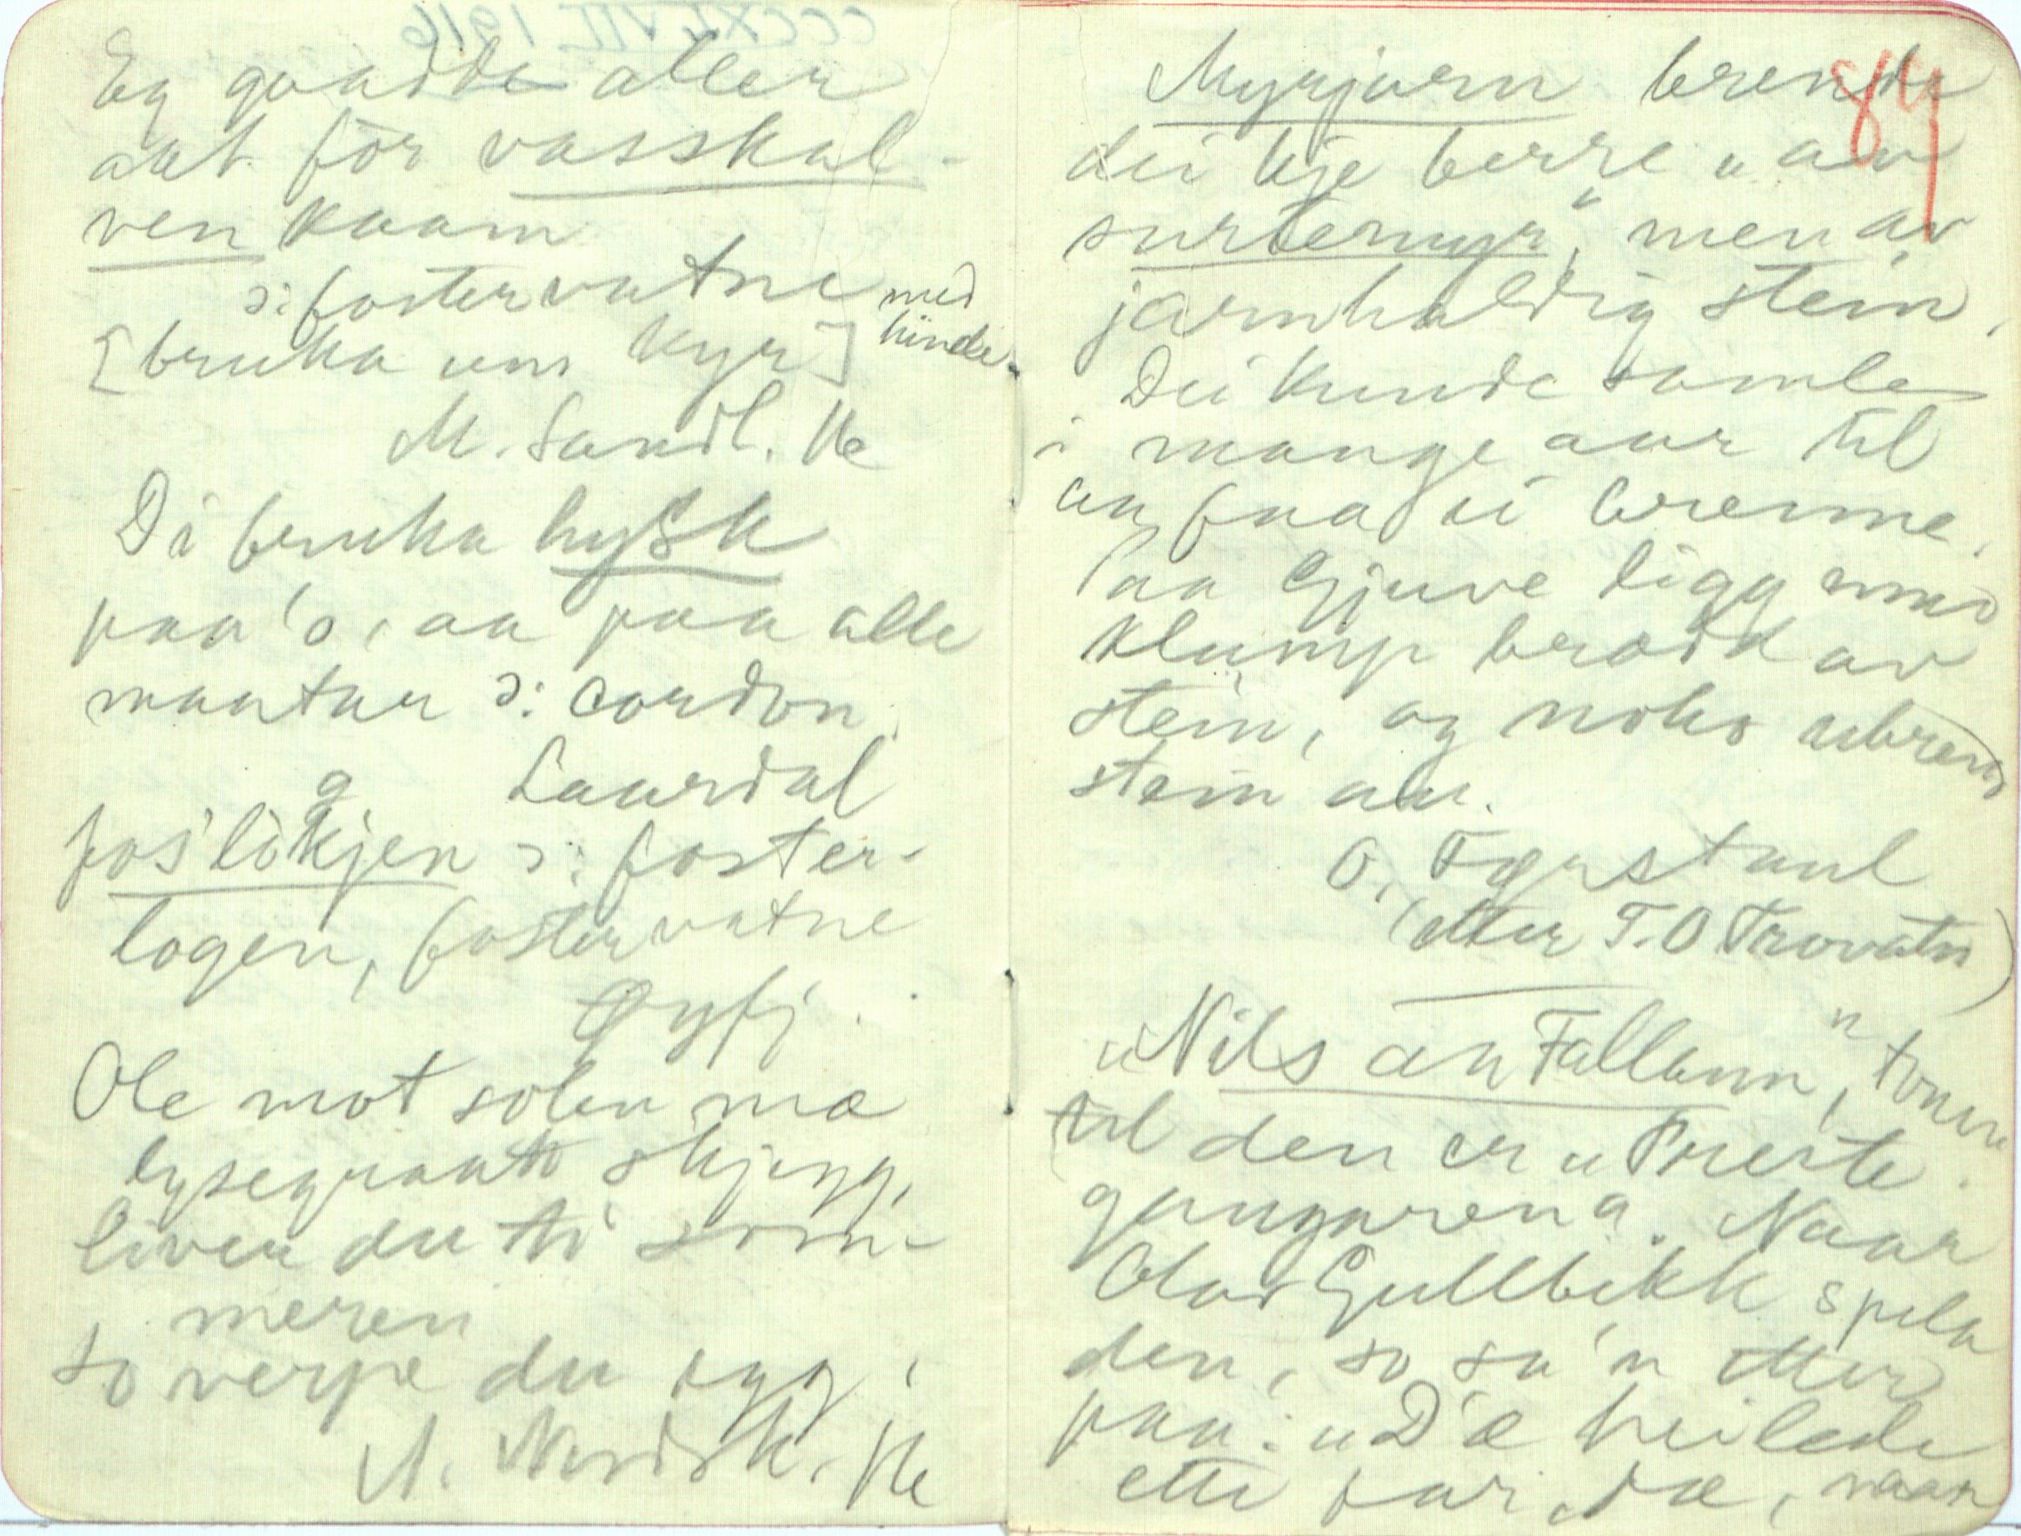 Eg gaadde aller
aat för vasskal-
ven kaam
ɔ: fostervatne med
hinde.
[bruka um kyr]
M. Sandl. Ke
Di bruka hysk
paa's, aa paa alle
maatar ɔ: cordon.
Laardal
g
fos'lökjen ɔ: foster-
logen, fostervatne
Øyfj.
Ole mot solen mæ
lysegraatt skjegg,
liver du ti som-
meren
so verpe du egg.
A. Nordsk. Ke
89
Myrjarn brende
dei kje berre "av
surtemyr", men av
jarnhaldig stein.
Dei kunde samle
i mange aar til
aa faa ei brenne.
Paa Gjuve ligg
klump brædd av
stein, og noko ubrend
stein au.
O. Tjørstaul
(etter T. O Trovatn)
"Nils aa Fallann", tonen
til den er "Preste-
gangaren". Naar
Olav Gullbekk spela
den, so sa'n etter
paa: "D'æ heilede
ette far, dæ, naar